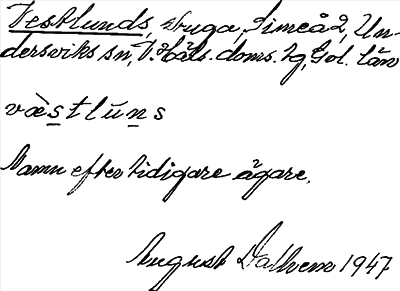 Vestlunds, stuga, Simeå 2, Un-
dersviks sn, V. Häls. doms. hg, Gol. län
væ̀stlŭns
Namn efter tidigare ägare.
August Dalhem 1947